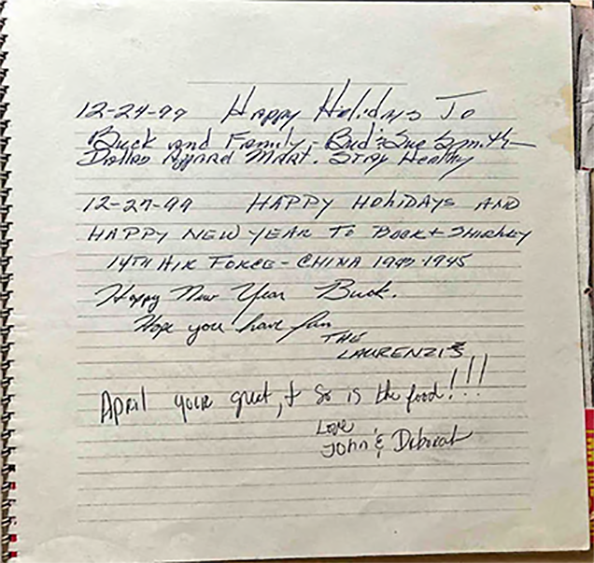 12-24-99 Happy Holidays To
Buck and Family - Bud & Sue Smith
Dallas Apparel Mart. Stay Healthy
12-27-99 HAPPY HOLIDAYS AND
HAPPY NEW YEAR TO BUCK + SHIRLEY
14TH AIR FORCE - CHINA 1943-1945
Happy New Year Buck.
Hope you have fun
THE
LAURENZI'S
April your great, + So is the food!!!
Love
John & Deborah